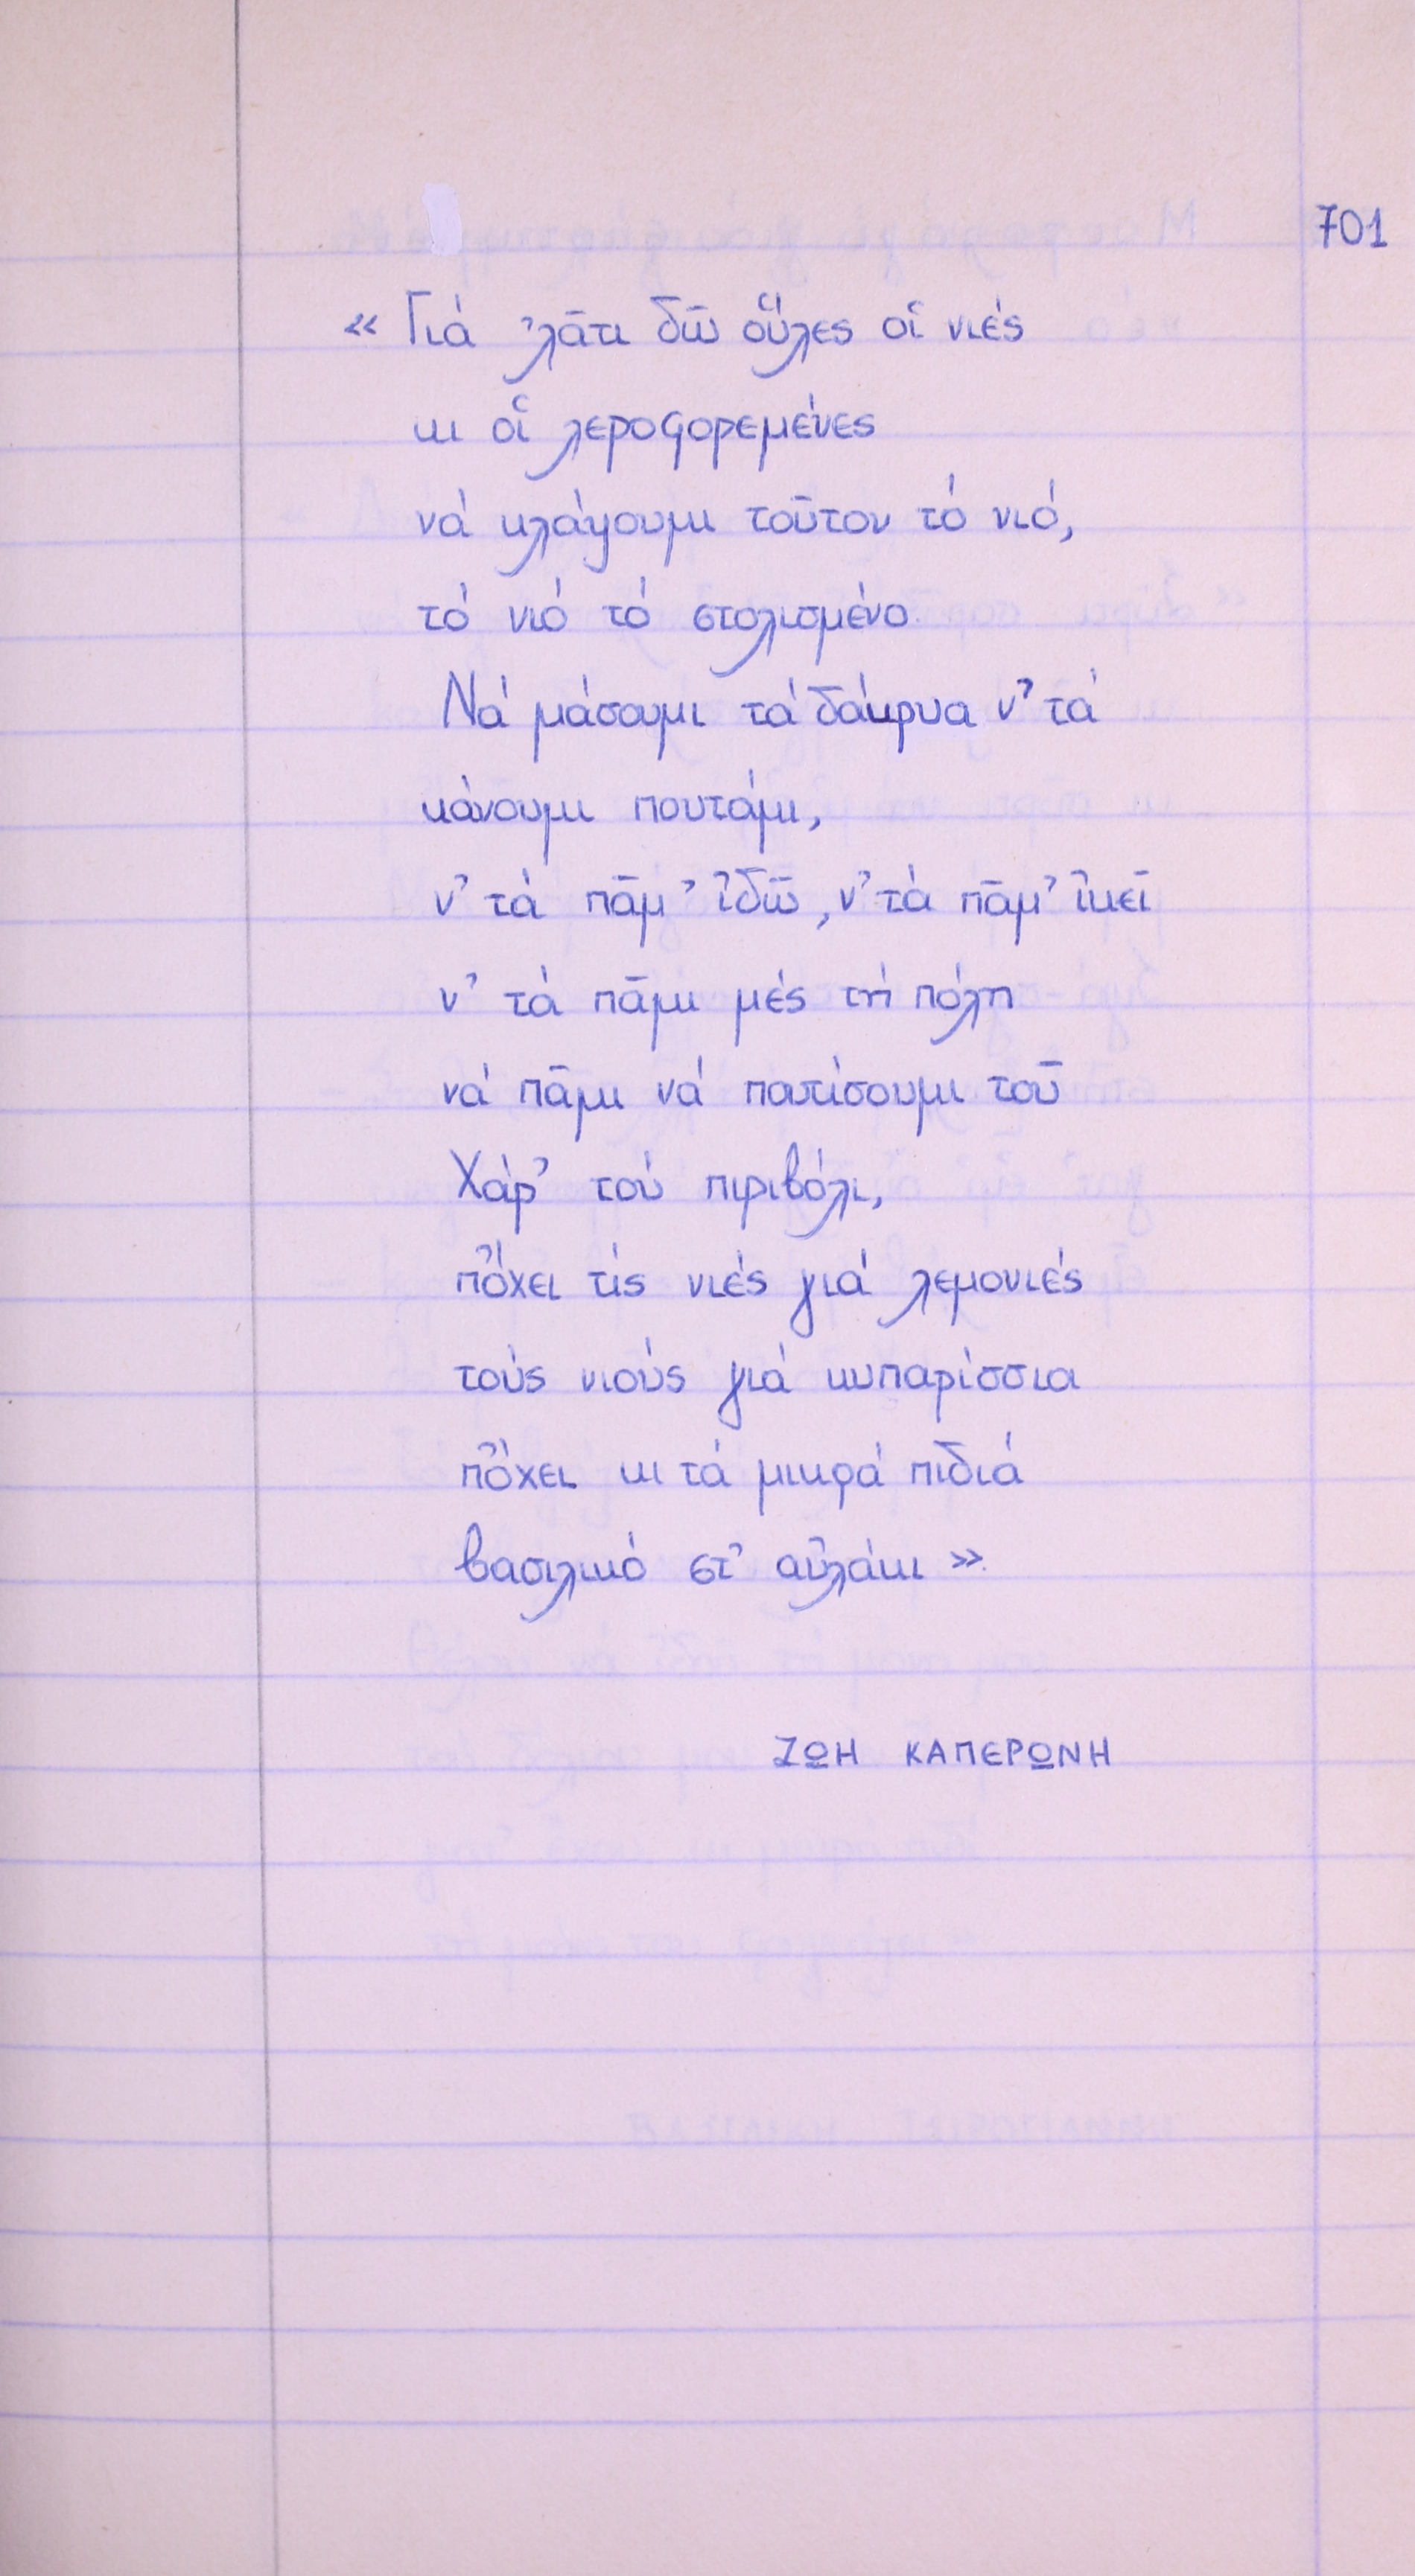 701
« Γιά ᾽λᾶτι δῶ οὕλες οἱ νιές
κι οἱ λεροφορεμένες
νά κλάψουμι τοῦτον τό νιό,
τό νιό τό στολισμένο.
Νά μάσουμι τά δάκρυα ν᾽ τά
κάνουμι πουτάμι,
ν᾽ τά πᾶμ᾽ ἰδῶ, ν᾽ τά πᾶμ᾽ ἰκεῖ
ν᾽ τά πᾶμι μές τή πόλη
νά πᾶμι νά πατίσουμι τοῦ
Χάρ᾽ τού πιριβόλι,
πὄχει τίς νιές γιά λεμονιές
τούς νιούς γιά κυπαρίσσια
πὄχει κι τά μικρά πιδιά
βασιλικό στ᾽ αὐλάκι ».
ΖΩΗ ΚΑΠΕΡΩΝΗ